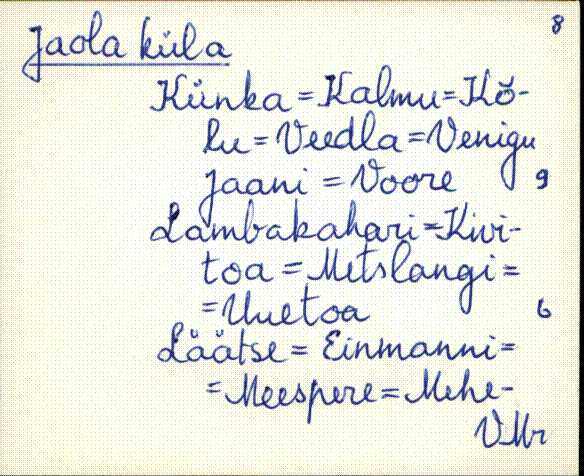 8
Jaola küla
Künka = Kalmu = Kõ-
ku = Veedla = Venigu
Jaani = Voore
9
Lambakahari = Kivi-
toa = Metslangi =
= Uuetoa
6
Läätse = Einmanni =
= Meespere = Mehe-
VMr